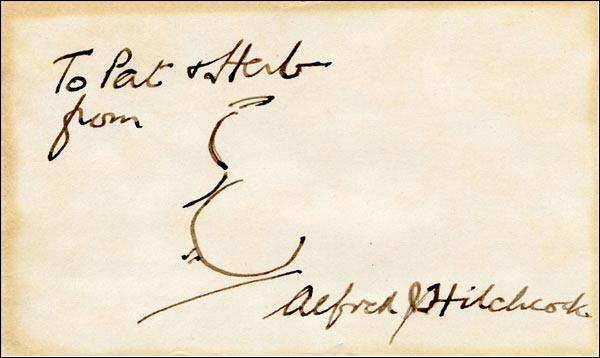 To Pat & Herb
from
Alfred J Hitchcock